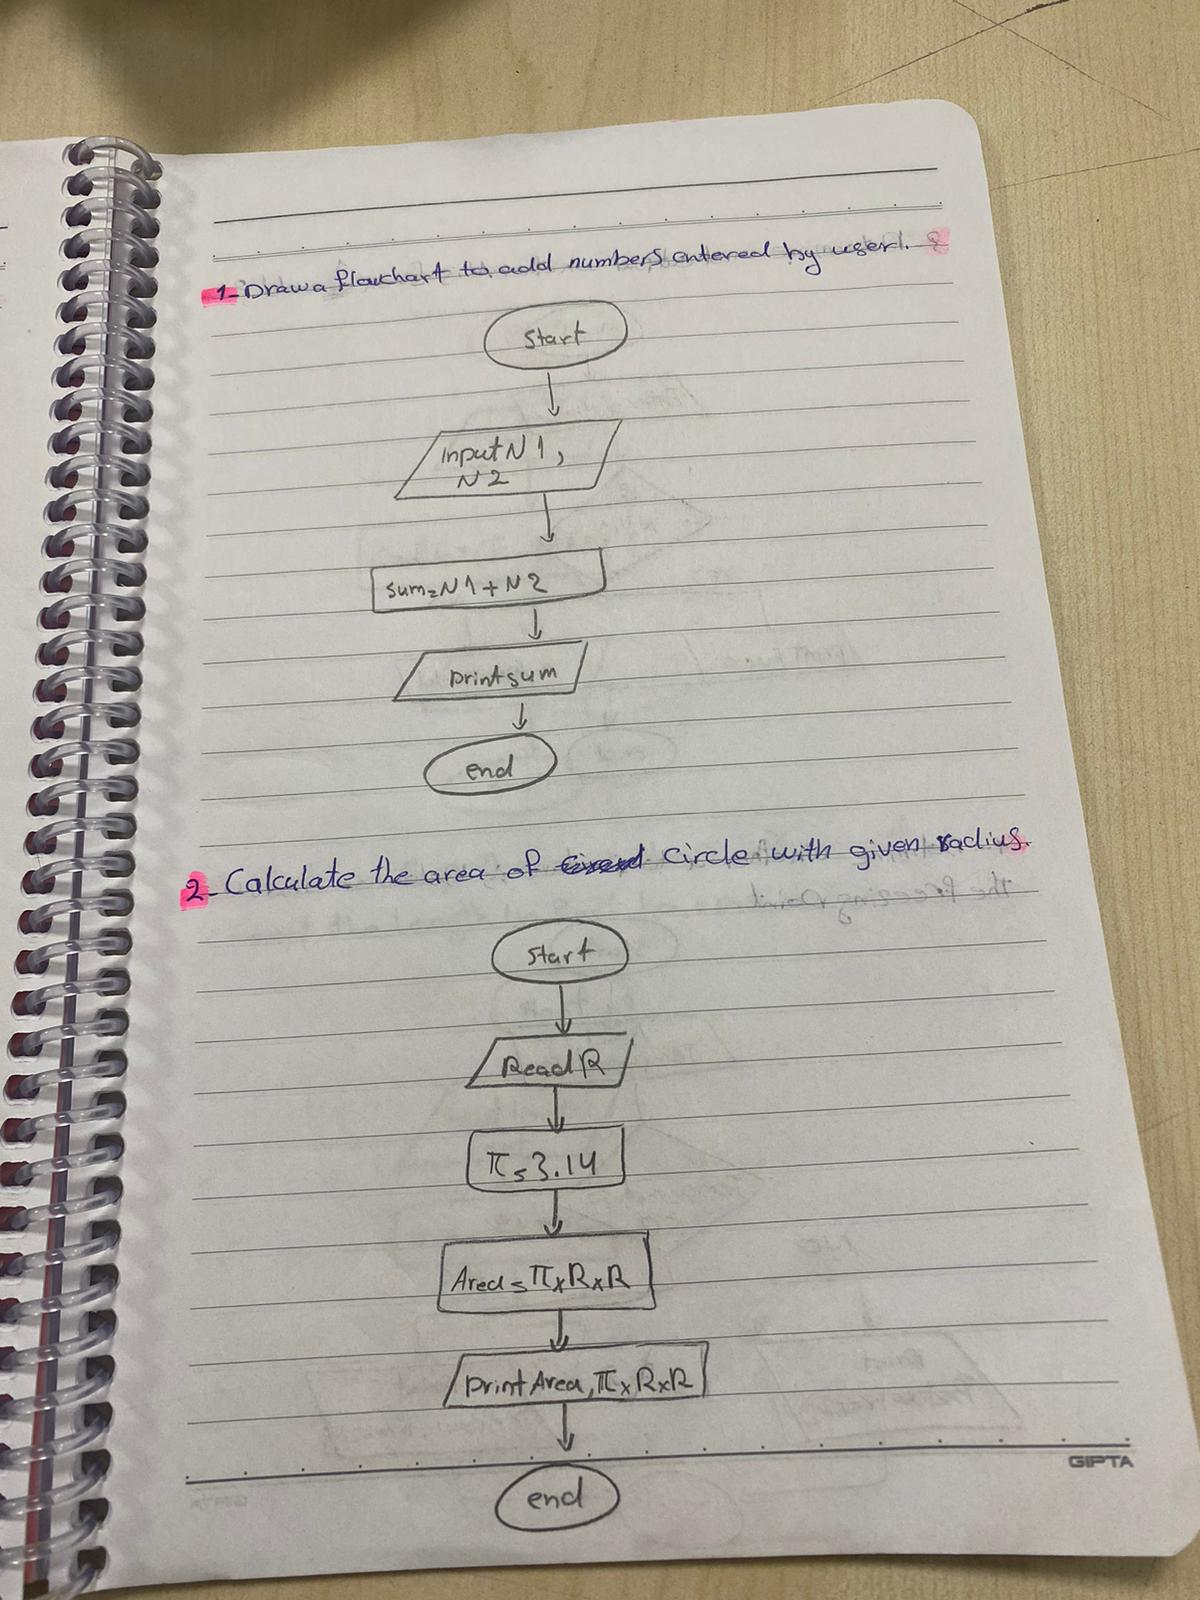 1-Draw a flowchart to add numbers entered by user.
Start
input N1,
N2
sum=N1+N2
print sum
end
2-Calculate the area of Circle with given radius.
Start
Read R
π=3.14
Area=π×R×R
print Area, π×R×R
GIPTA
end